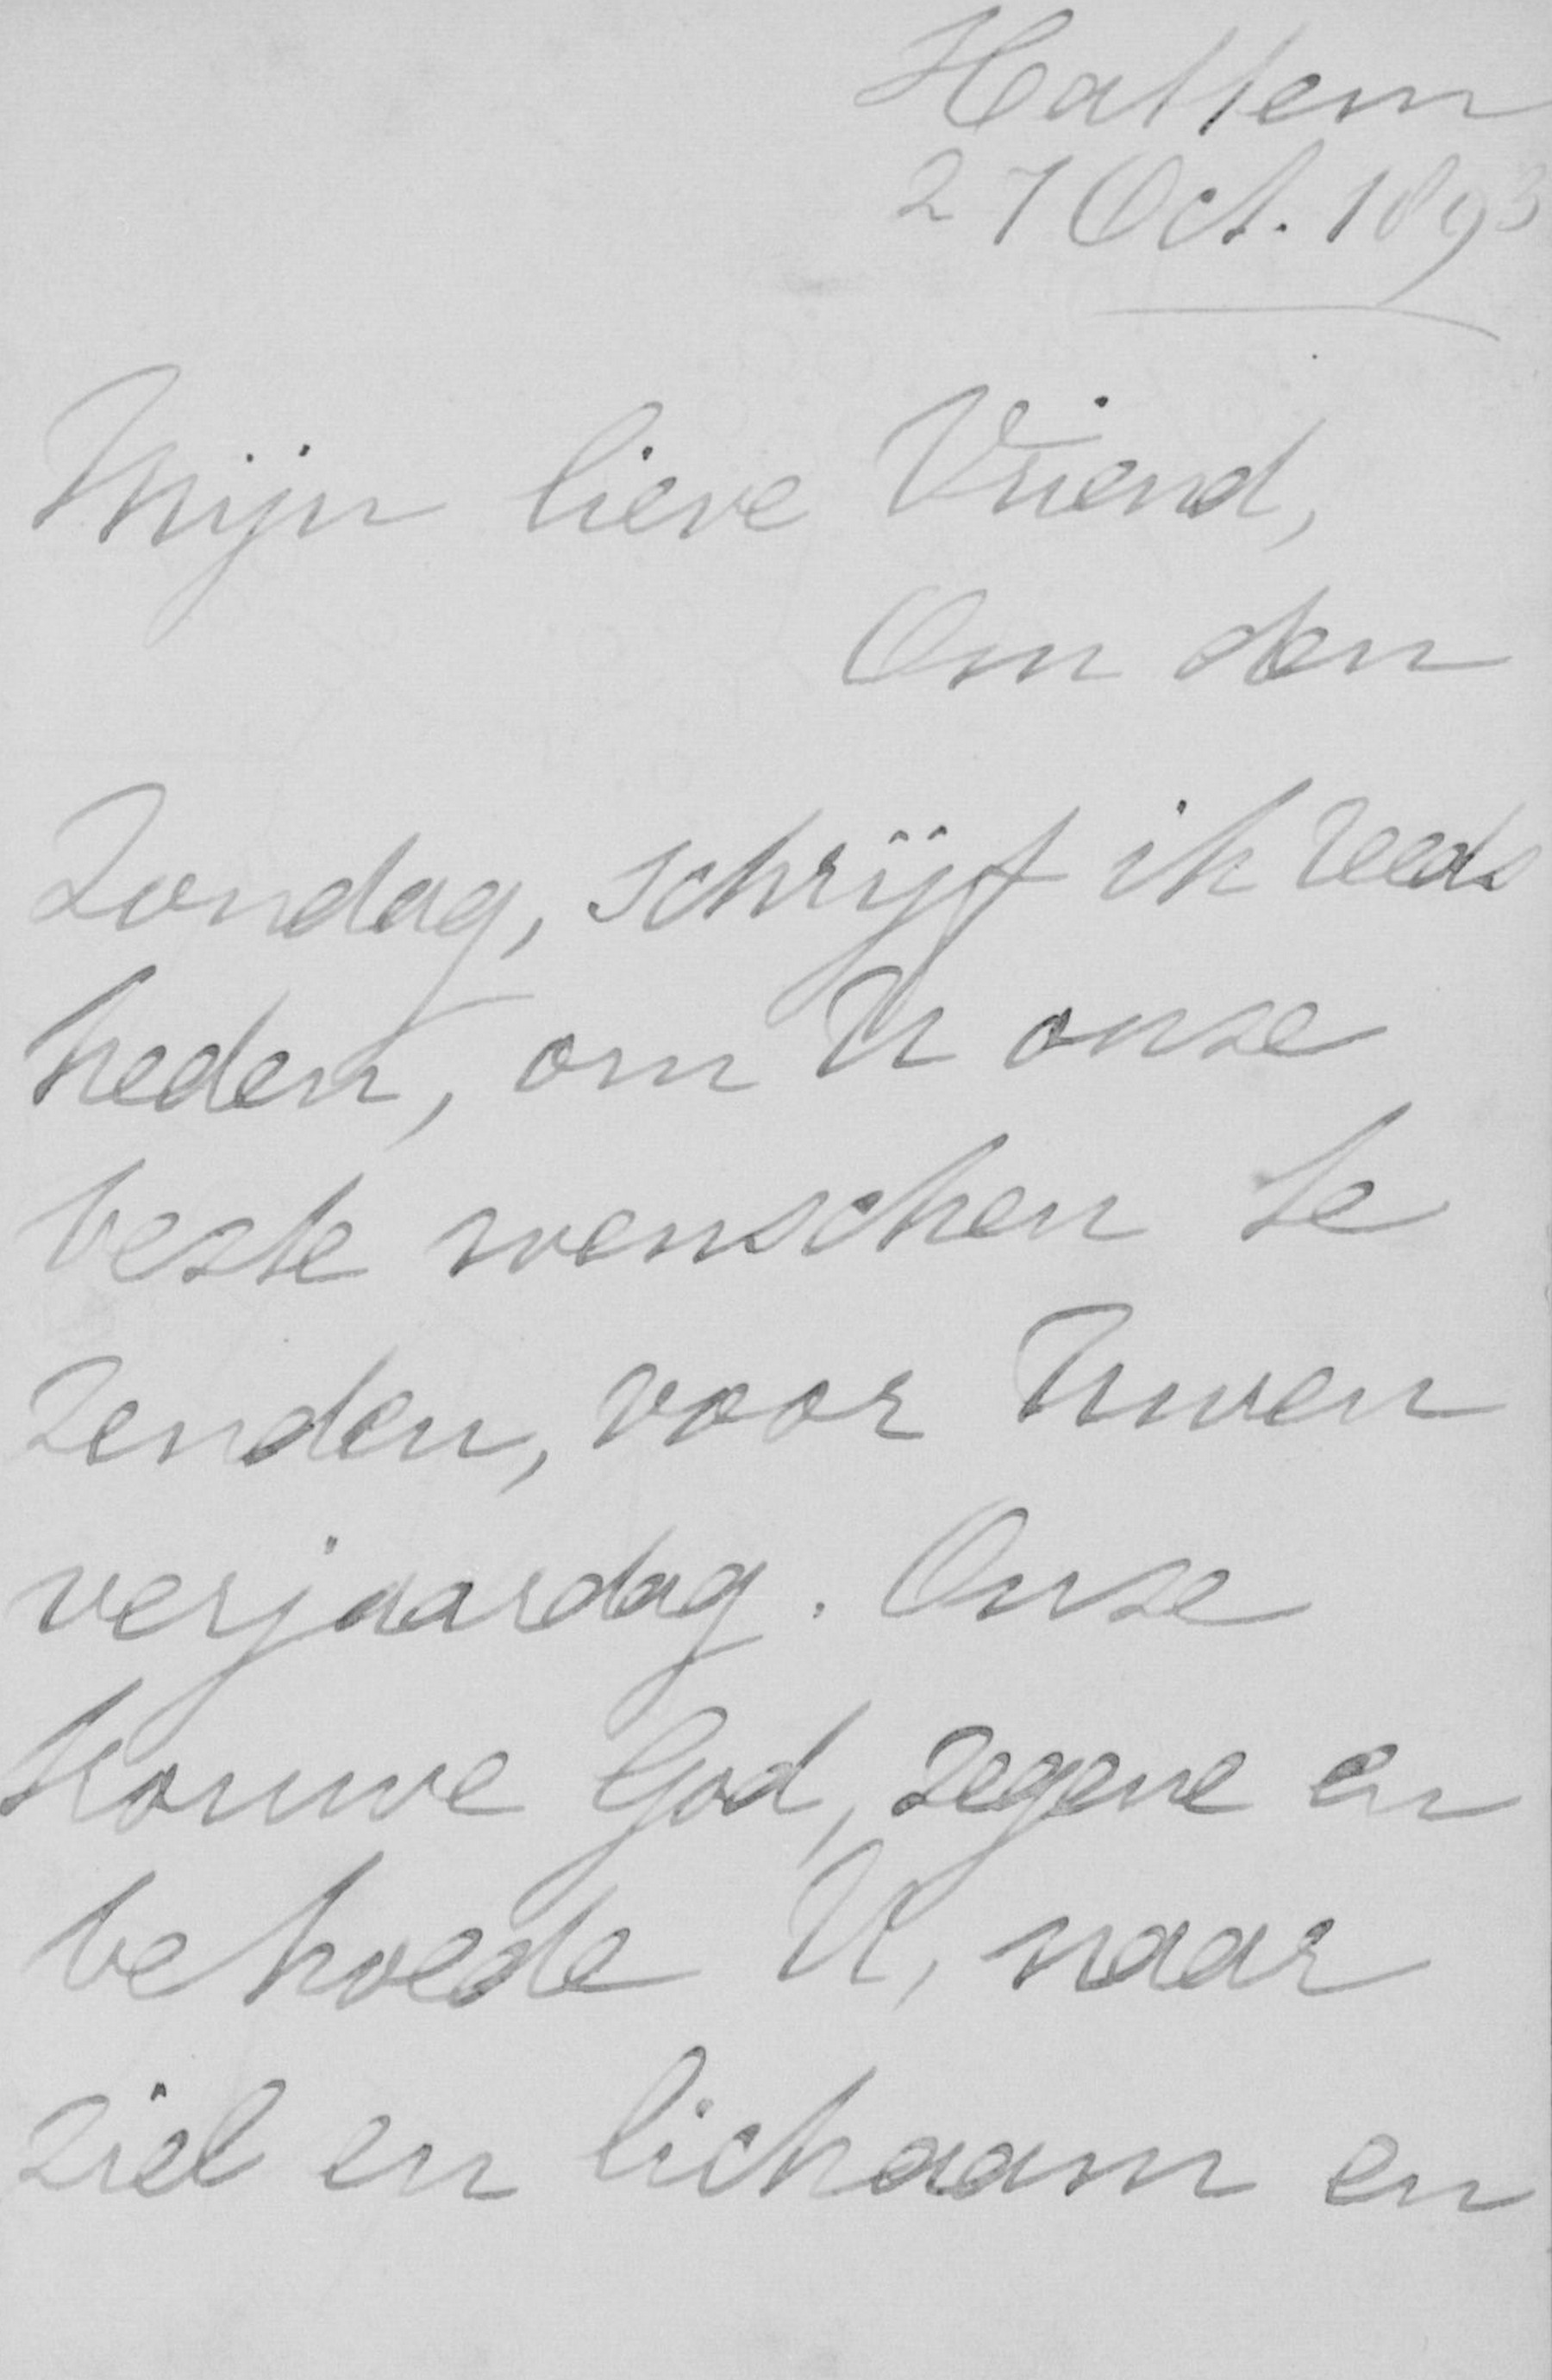 Hattem
27 Oct. 1893
Mijn lieve Vriend,
Om den
Zondag, schrijf ik reeds
heden, om U onze
beste wenschen te
zenden, voor Uwen
verjaardag. Onze
trouwe God, zegene en
behoede U, naar
ziel en lichaam en